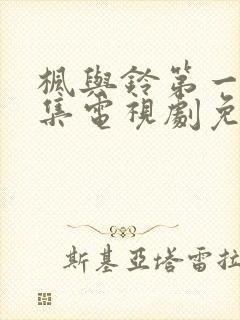 楓與鈴第一
集電視劇免
斯基亞塔雷拉